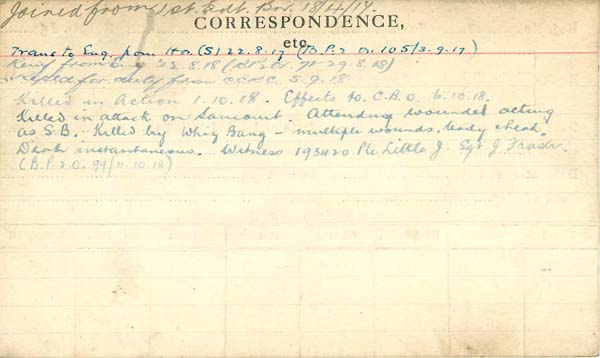 Joined from 1st. Edt. Bn. 18/4/17.
CORRESPONDENCE,
etc.
Trans to Eng. from Hd. (S) 22.8.17 (B.P.2 O. 105/3.9.17)
Reinf from Eng 22.8.18 (O. 71 29.8.18)
for duty from CCRC. 5.9.18
Killed in Action 1.10.18. Effects to C.B.O. 6.10.18.
Killed in attack on Sancourt. Attending wounded acting
as S.B. Killed by Whiz Bang - multiple wounds, body & head.
Death instantaneous. Witness 193420 Pte Little J. Sgt J Fraser.
(B.P.2 O. 99/11.10.18)